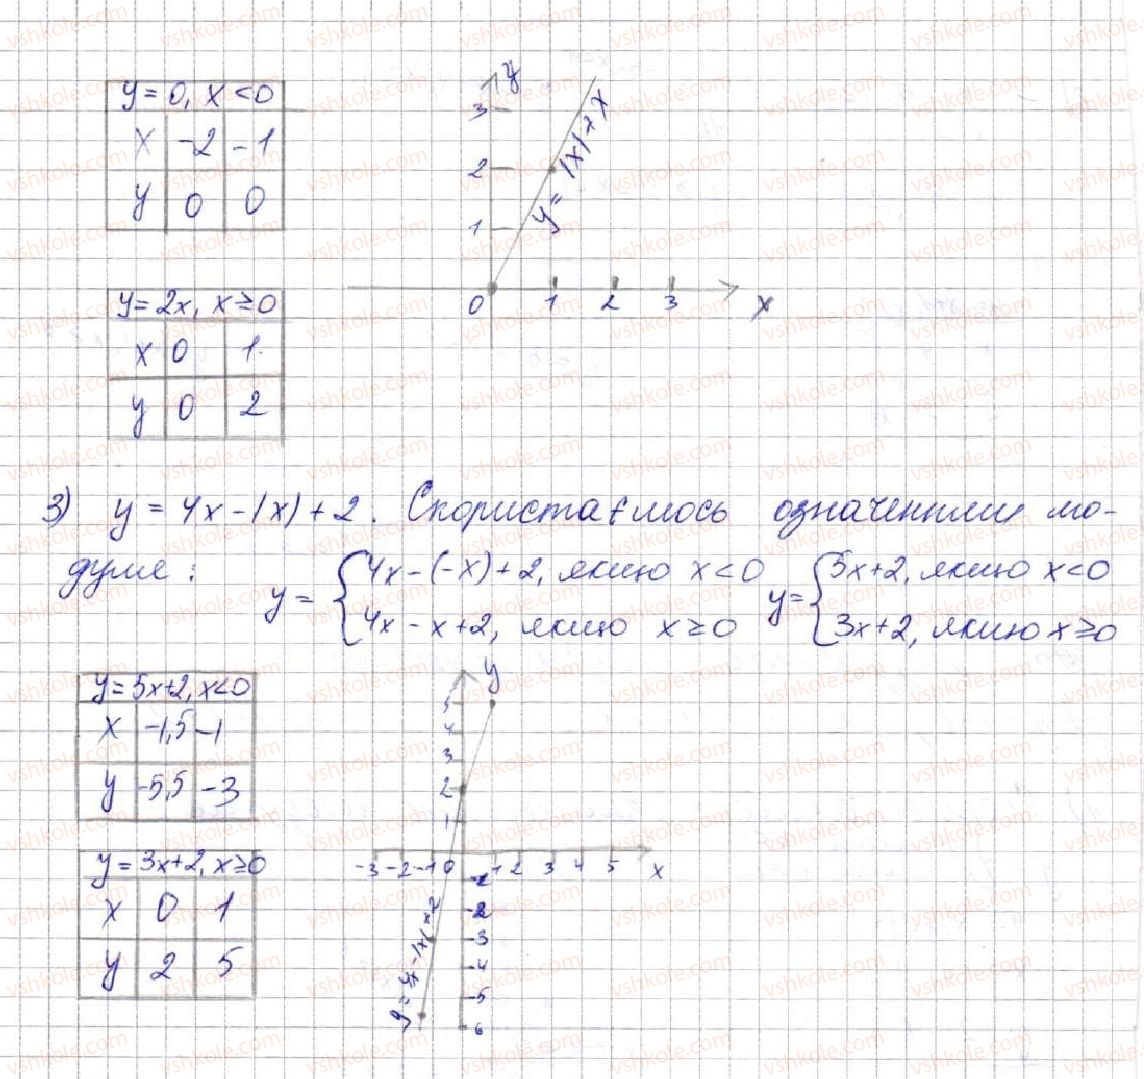 y = 0, x < 0
x -2 -1
y 0 0
y
3
2
1
0 1 2 3 x
y = |x| + x
y = 2x, x ≥ 0
x 0 1
y 0 2
3) y = 4x - |x| + 2. Скористаємось означенням мо-
дуля :
y = { 4x - (-x) + 2, якщо x < 0
4x - x + 2, якщо x ≥ 0
y = { 5x + 2, якщо x < 0
3x + 2, якщо x ≥ 0
y = 5x + 2, x < 0
x -1,5 -1
y -5,5 -3
y = 3x + 2, x ≥ 0
x 0 1
y 2 5
y
5
4
3
2
1
-3 -2 -1 0 1 2 3 4 5 x
-2
-3
-4
-5
6
vshkole.com